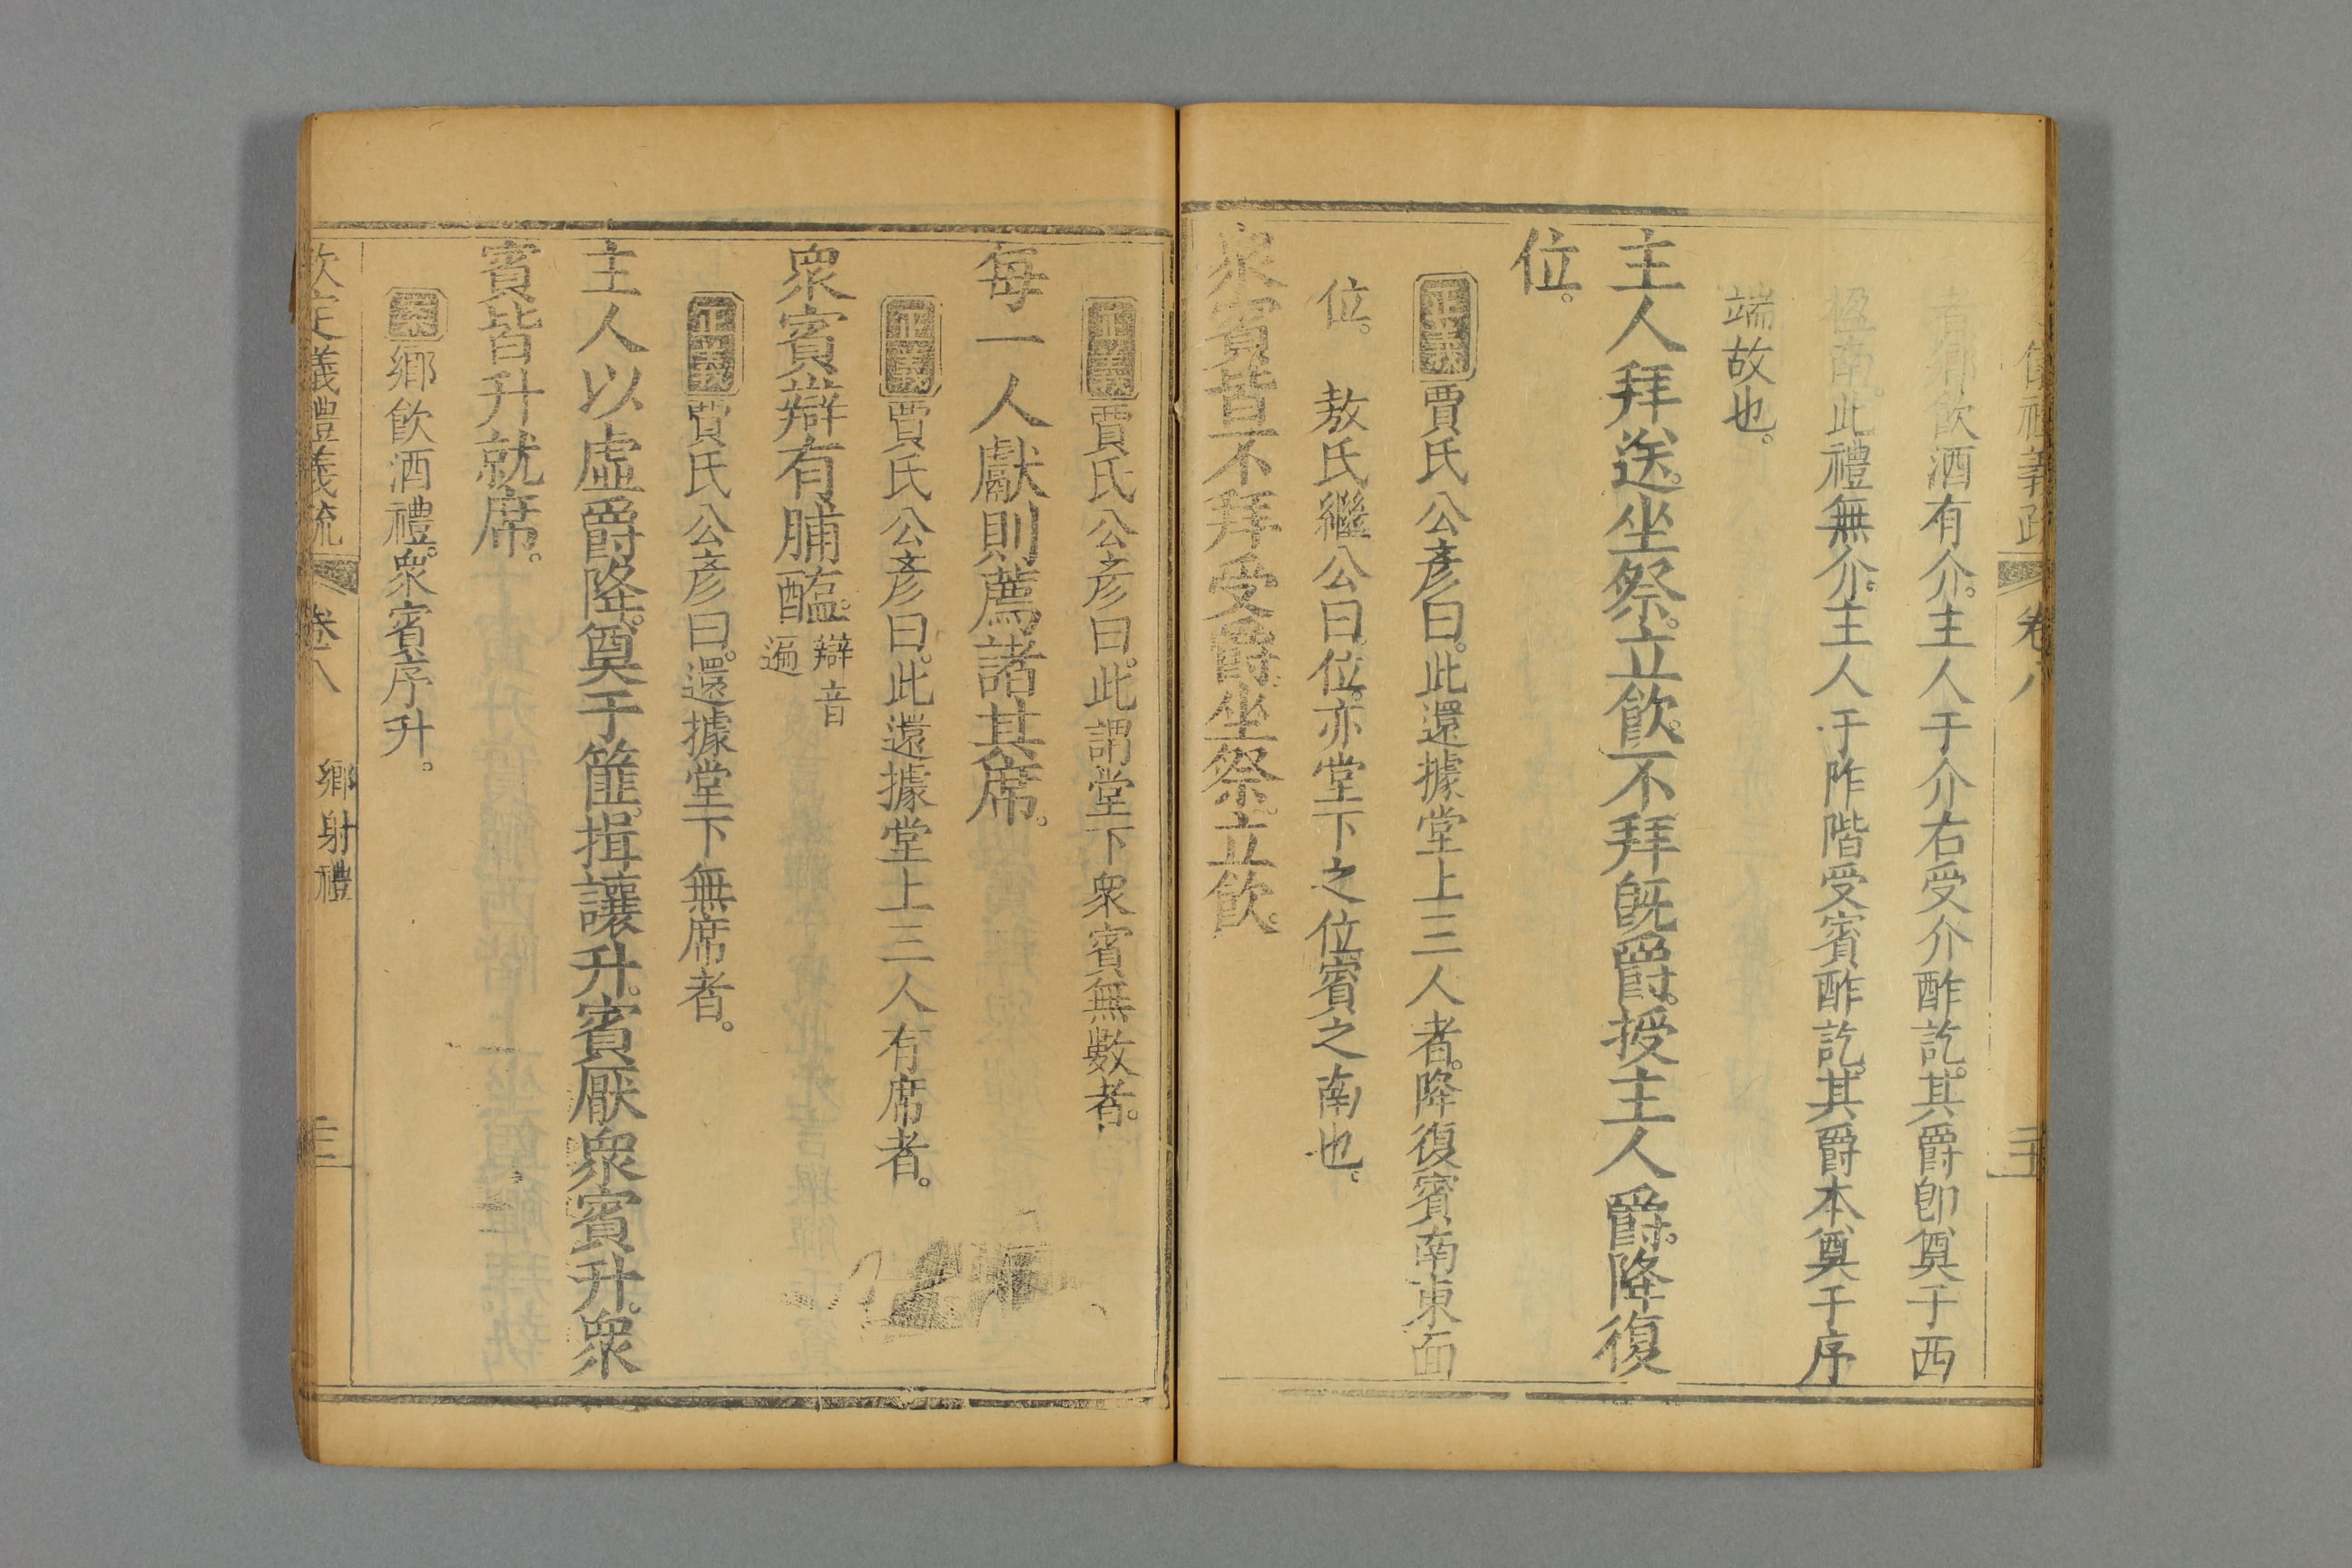 儀禮義疏 卷八
者鄉飲酒有介。主人于介右受介酢訖。其爵卽奠于西
楹南。此禮無介。主人于阼階受賓酢訖。其爵本奠于序
端故也。
主人拜送。坐祭。立飲。不拜旣爵。授主人爵。降復
位。
正義 賈氏公彥曰。此還據堂上三人者。降復賓南東面
位。 敖氏繼公曰。位。亦堂下之位。賓之南也。
衆賓皆不拜受爵。坐祭。立飲。
正義 賈氏公彥曰。此謂堂下衆賓無數者。
每一人獻則薦諸其席。
正義 賈氏公彥曰。此還據堂上三人有席者。
衆賓辯有脯醢。辯音遍
正義 賈氏公彥曰。還據堂下無席者。
主人以虛爵降。奠于篚。揖讓升。賓厭衆賓升。衆
賓皆升就席。
案 鄉飲酒禮。衆賓序升。
欽定儀禮義疏 卷八 鄉射禮